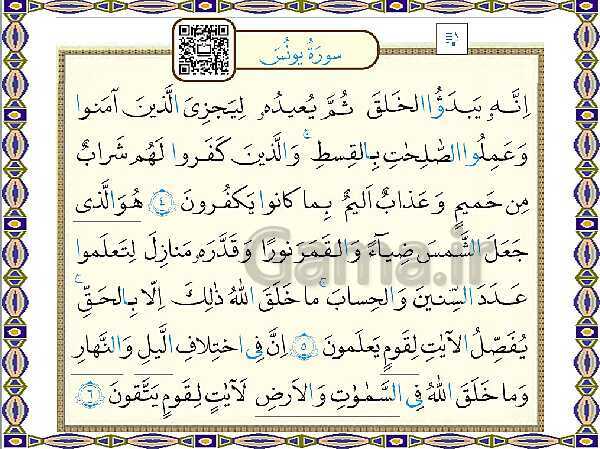 سورَةُ یونُس
اِنَّهٗ یَبدَؤُا الخَلقَ ثُمَّ یُعیدُهٗ لِیَجزِیَ الَّذینَ آمَنوا
وَ عَمِلُوا الصّٰلِحٰتِ بِالقِسطِ ۚ وَ الَّذینَ کَفَروا لَهُم شَرابٌ
مِن حَمیمٍ وَ عَذابٌ اَلیمٌ بِما کانوا یَکفُرونَ ﴿٤﴾ هُوَ الَّذی
جَعَلَ الشَّمسَ ضِیآءً وَ القَمَرَ نورًا وَ قَدَّرَهٗ مَنازِلَ لِتَعلَموا
عَدَدَ السِّنینَ وَ الحِسابَ ۚ ما خَلَقَ اللّٰهُ ذٰلِکَ اِلّا بِالحَقِّ ۚ
یُفَصِّلُ الآیٰتِ لِقَومٍ یَعلَمونَ ﴿٥﴾ اِنَّ فِی اختِلافِ الَّیلِ وَ النَّهارِ
وَ ما خَلَقَ اللّٰهُ فِی السَّمٰوٰتِ وَ الاَرضِ لَآیٰتٍ لِقَومٍ یَتَّقونَ ﴿٦﴾
Gama.ir